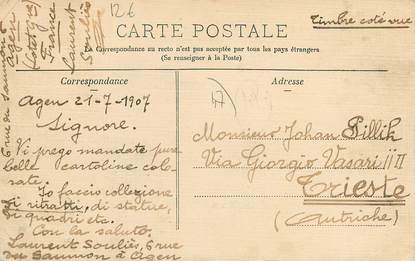 12€
Timbre coté vue
CARTE POSTALE
La Correspondance au recto n'est pas acceptée par tous les pays étrangers
(Se renseigner à la Poste)
Correspondance
Adresse
6 rue du Saumon
Agen
(Lot et Gne)
France
Laurent
Souliès
Agen 21-7-1907
Signore.
Vi prego mandate pure
belle cartoline colo-
rate.
Io faccio collezione
di ritratti, di statue,
di quadri etc.
Con la saluto,
Laurent Souliès, 6 rue
du Saumon à Agen
47
Monsieur Johan Pillik
Via Giorgio Vasari
Trieste
(Autriche)